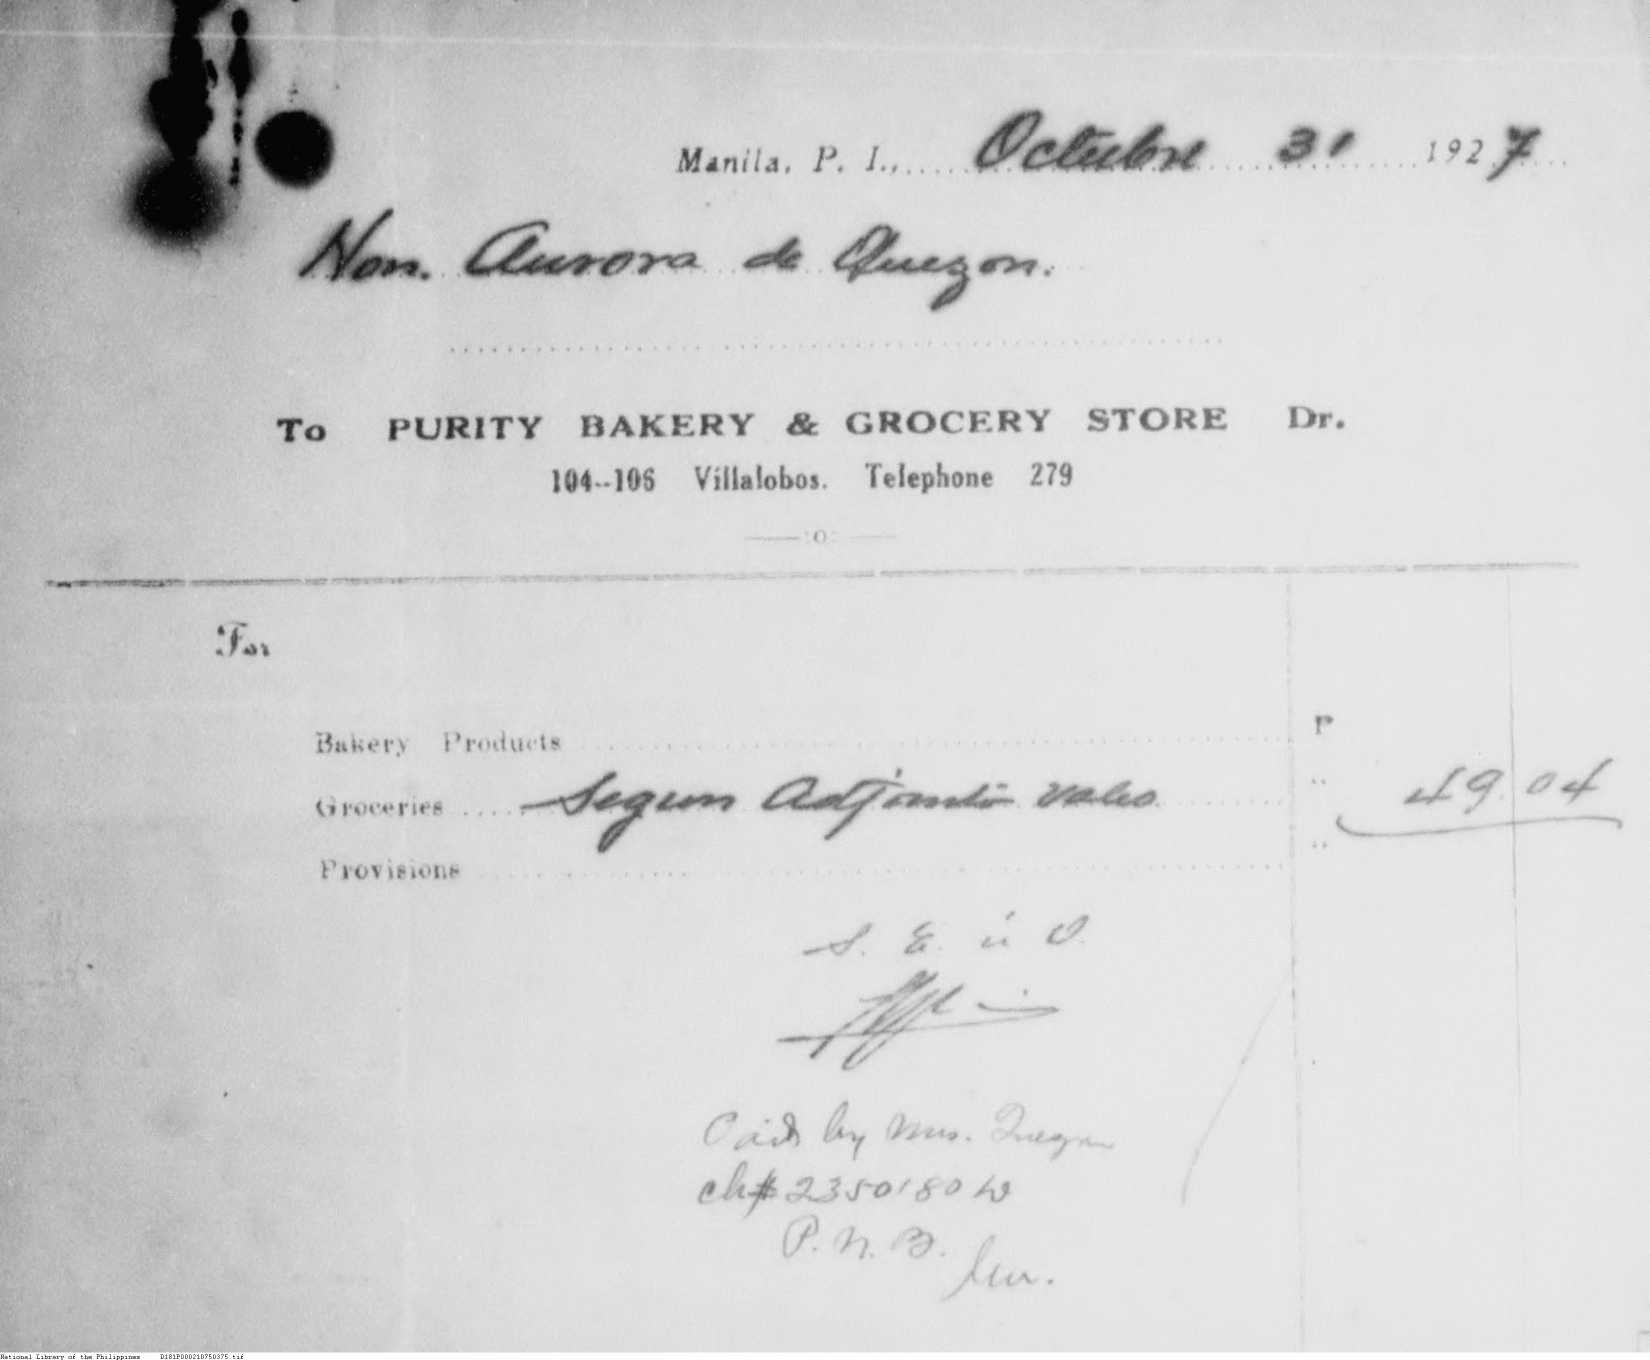 Manila, P. I., Octubre 31 1927
Hon. Aurora de Quezon.
To PURITY BAKERY & GROCERY STORE Dr.
104--106 Villalobos. Telephone 279
:o:
For
Bakery Products P
Groceries Segun Adjunto vales " 49 04
Provisions "
S. E. ú O.
Paid by Mrs. Quezon
ch# 2350180 W
P. N. B.
National Library of the Philippines D181P000210750375.tif